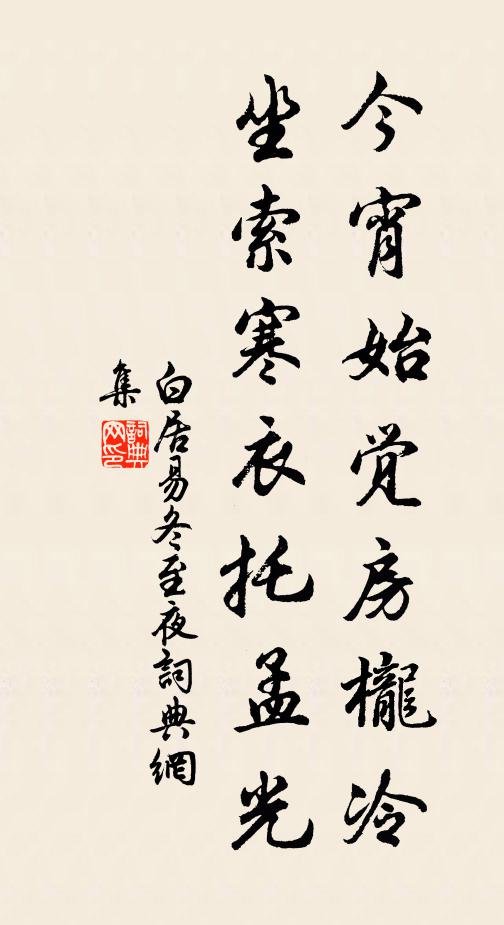 今宵始觉房櫳冷
坐索寒衣托孟光
白居易冬至夜詞典網
集
詞典网印